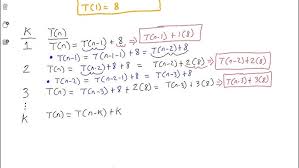 T(1) = 8
K T(n)
1 T(n) = T(n-1) + 8 → T(n-1) + 1(8)
• T(n-1) = T(n-1-1) + 8 = T(n-2) + 8
2 T(n) = T(n-2) + 8 + 8 = T(n-2) + 2(8) → T(n-2) + 2(8)
• T(n-2) = T(n-2-1) + 8 = T(n-3) + 8
3 T(n) = T(n-3) + 8 + 2(8) = T(n-3) + 3(8) → T(n-3) + 3(8)
⋮
K T(n) = T(n-K) + K